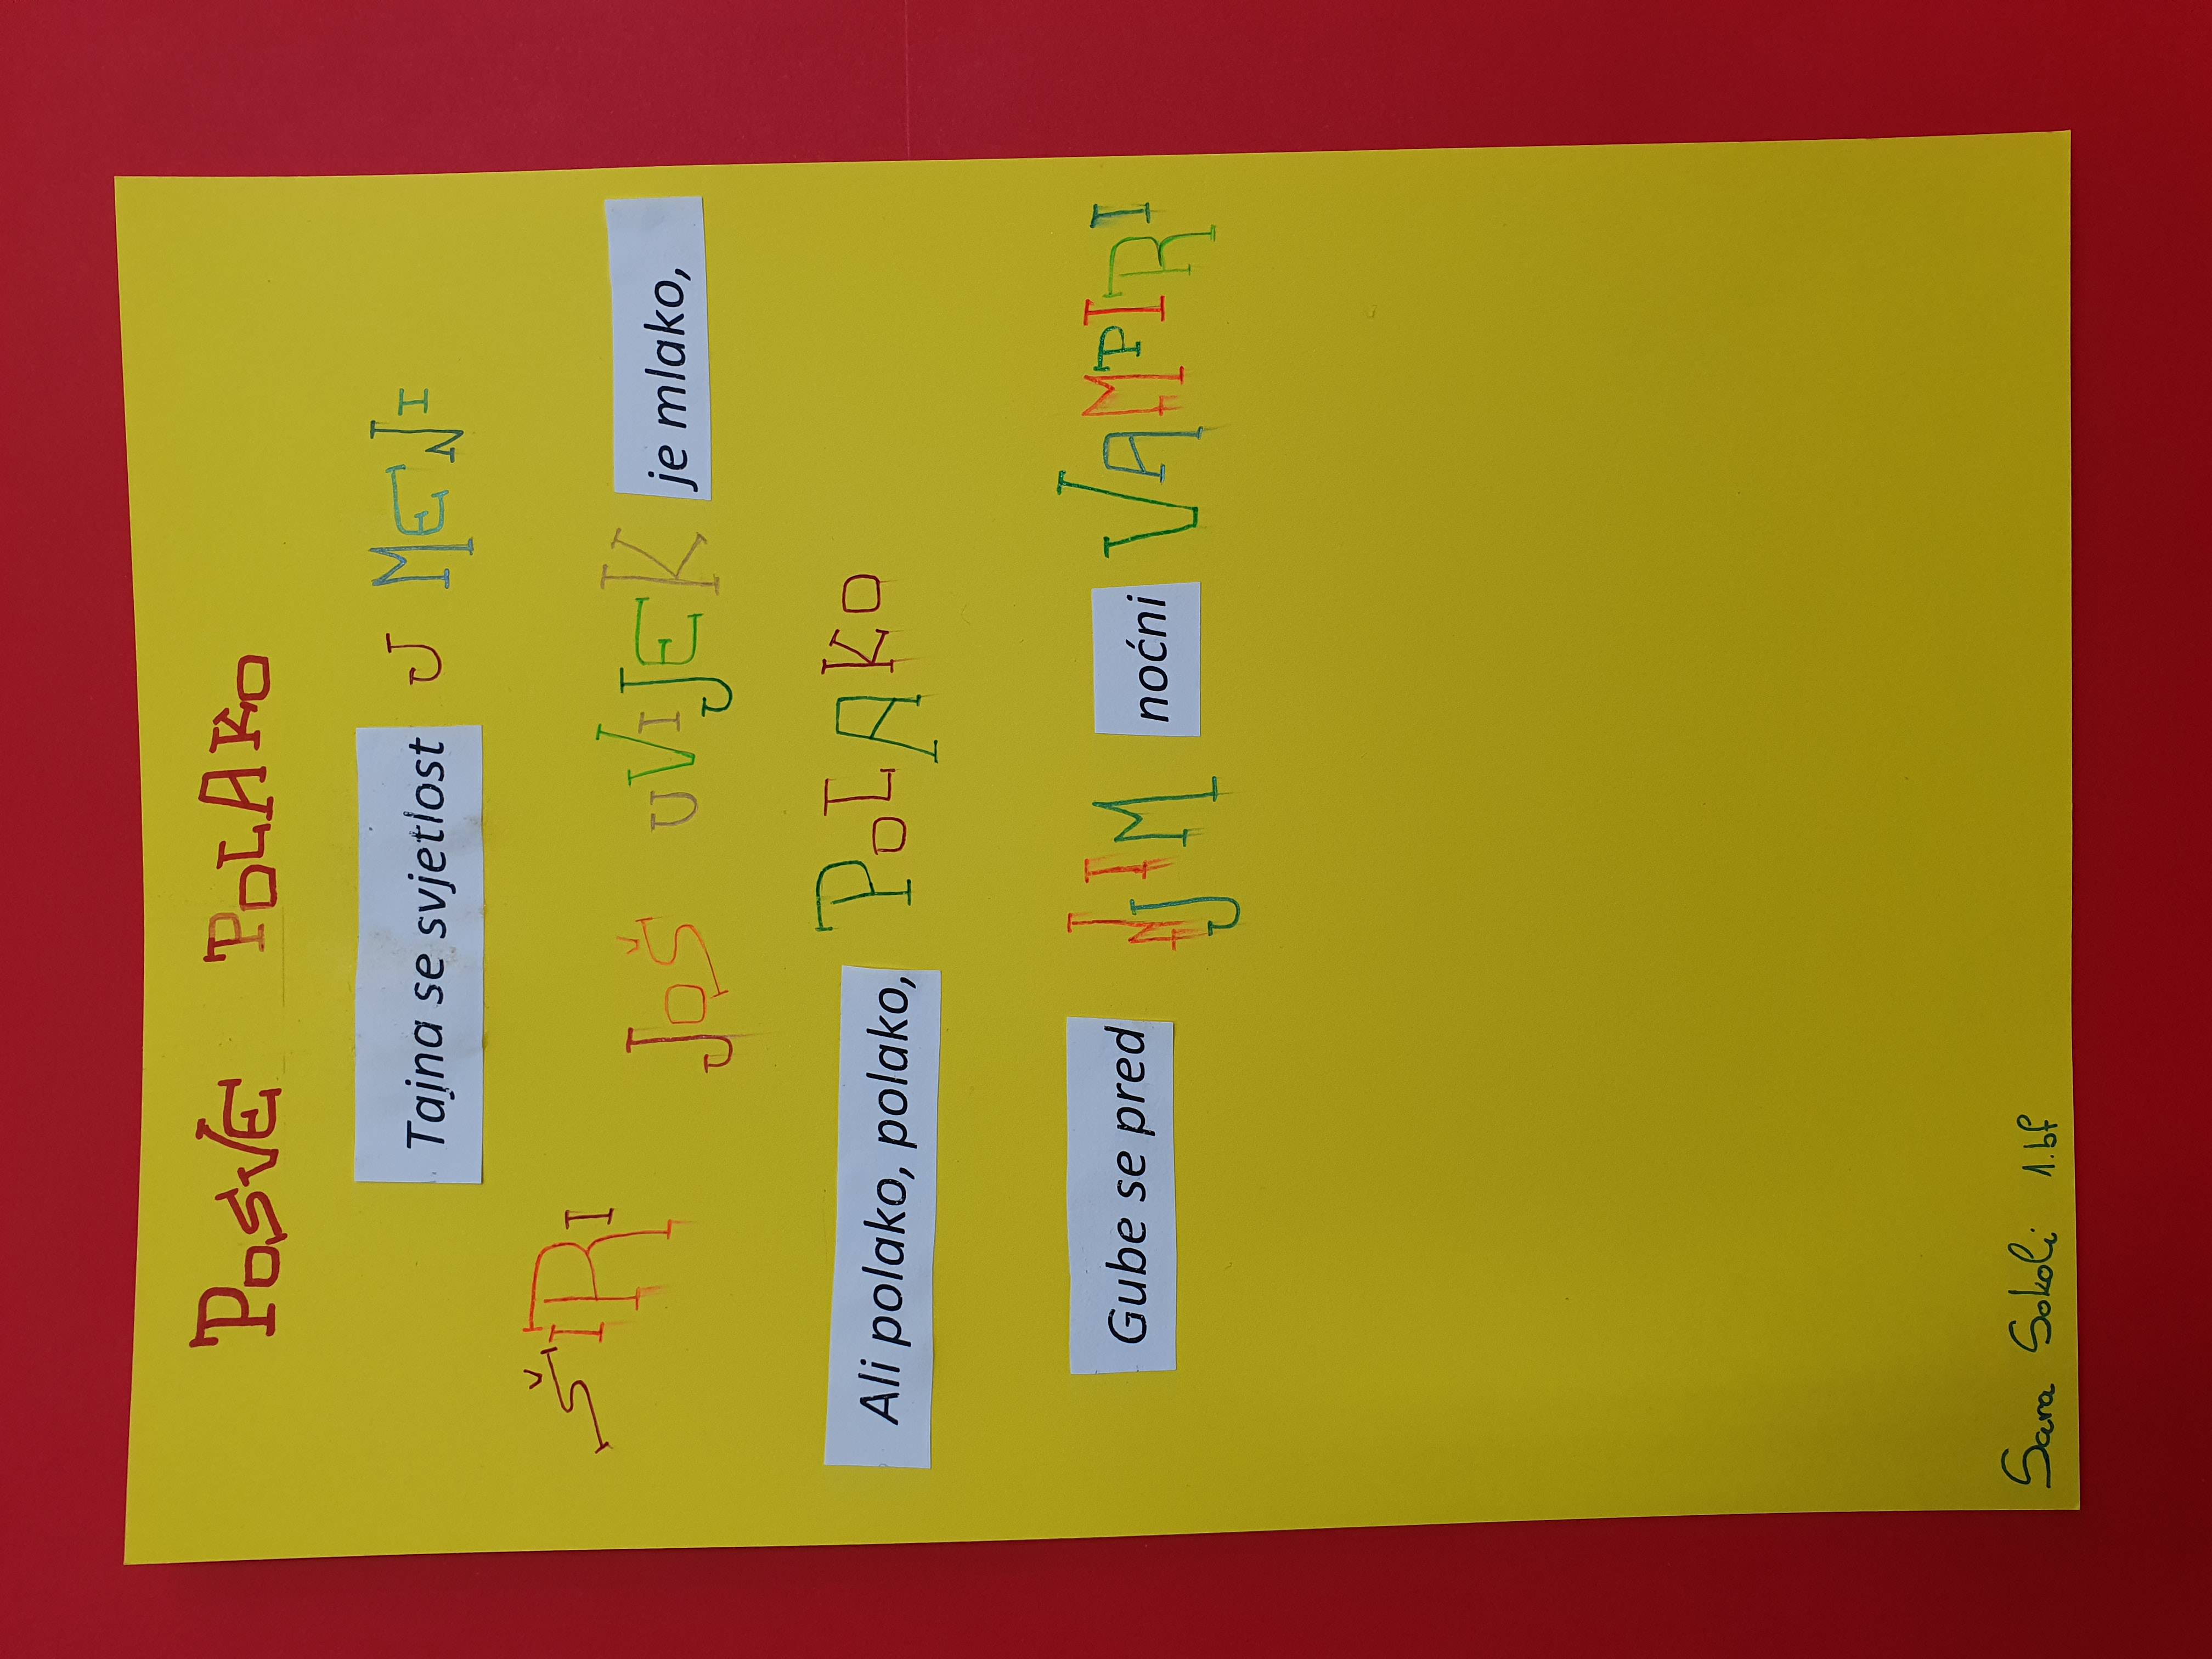 POSVE POLAKO
Tajna se svjetlost U MENI
ŠIRI JOŠ UVIJEK je mlako,
Ali polako, polako, POLAKO
Gube se pred NJIM noćni VAMPIRI
Sara Sokoli 1.bf